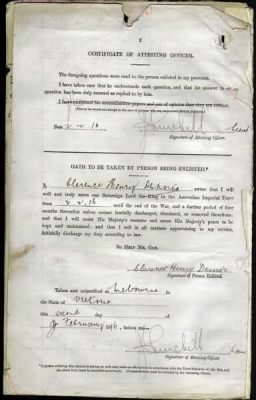 2
CERTIFICATE OF ATTESTING OFFICER.
The foregoing questions were read to the person enlisted in my presence.
I have taken care that he understands each question, and that his answer to each
question has been duly entered as replied to by him.
I have examined his naturalization papers and am of opinion that they are correct.
Date 2.2.16
Signature of Attesting Officer.
OATH TO BE TAKEN BY PERSON BEING ENLISTED.*
I, Clarence Henry Dennis swear that I will
well and truly serve our Sovereign Lord the King in the Australian Imperial Force
from 2.2.16 until the end of the War, and a further period of four
months thereafter unless sooner lawfully discharged, dismissed, or removed therefrom;
and that I will resist His Majesty's enemies and cause His Majesty's peace to be
kept and maintained; and that I will in all matters appertaining to my service,
faithfully discharge my duty according to law.
So Help Me, God.
Clarence Henry Dennis
Signature of Person Enlisted.
Taken and subscribed at Melbourne in
the State of Victoria
this second day
of February 1916, before me—
Signature of Attesting Officer.